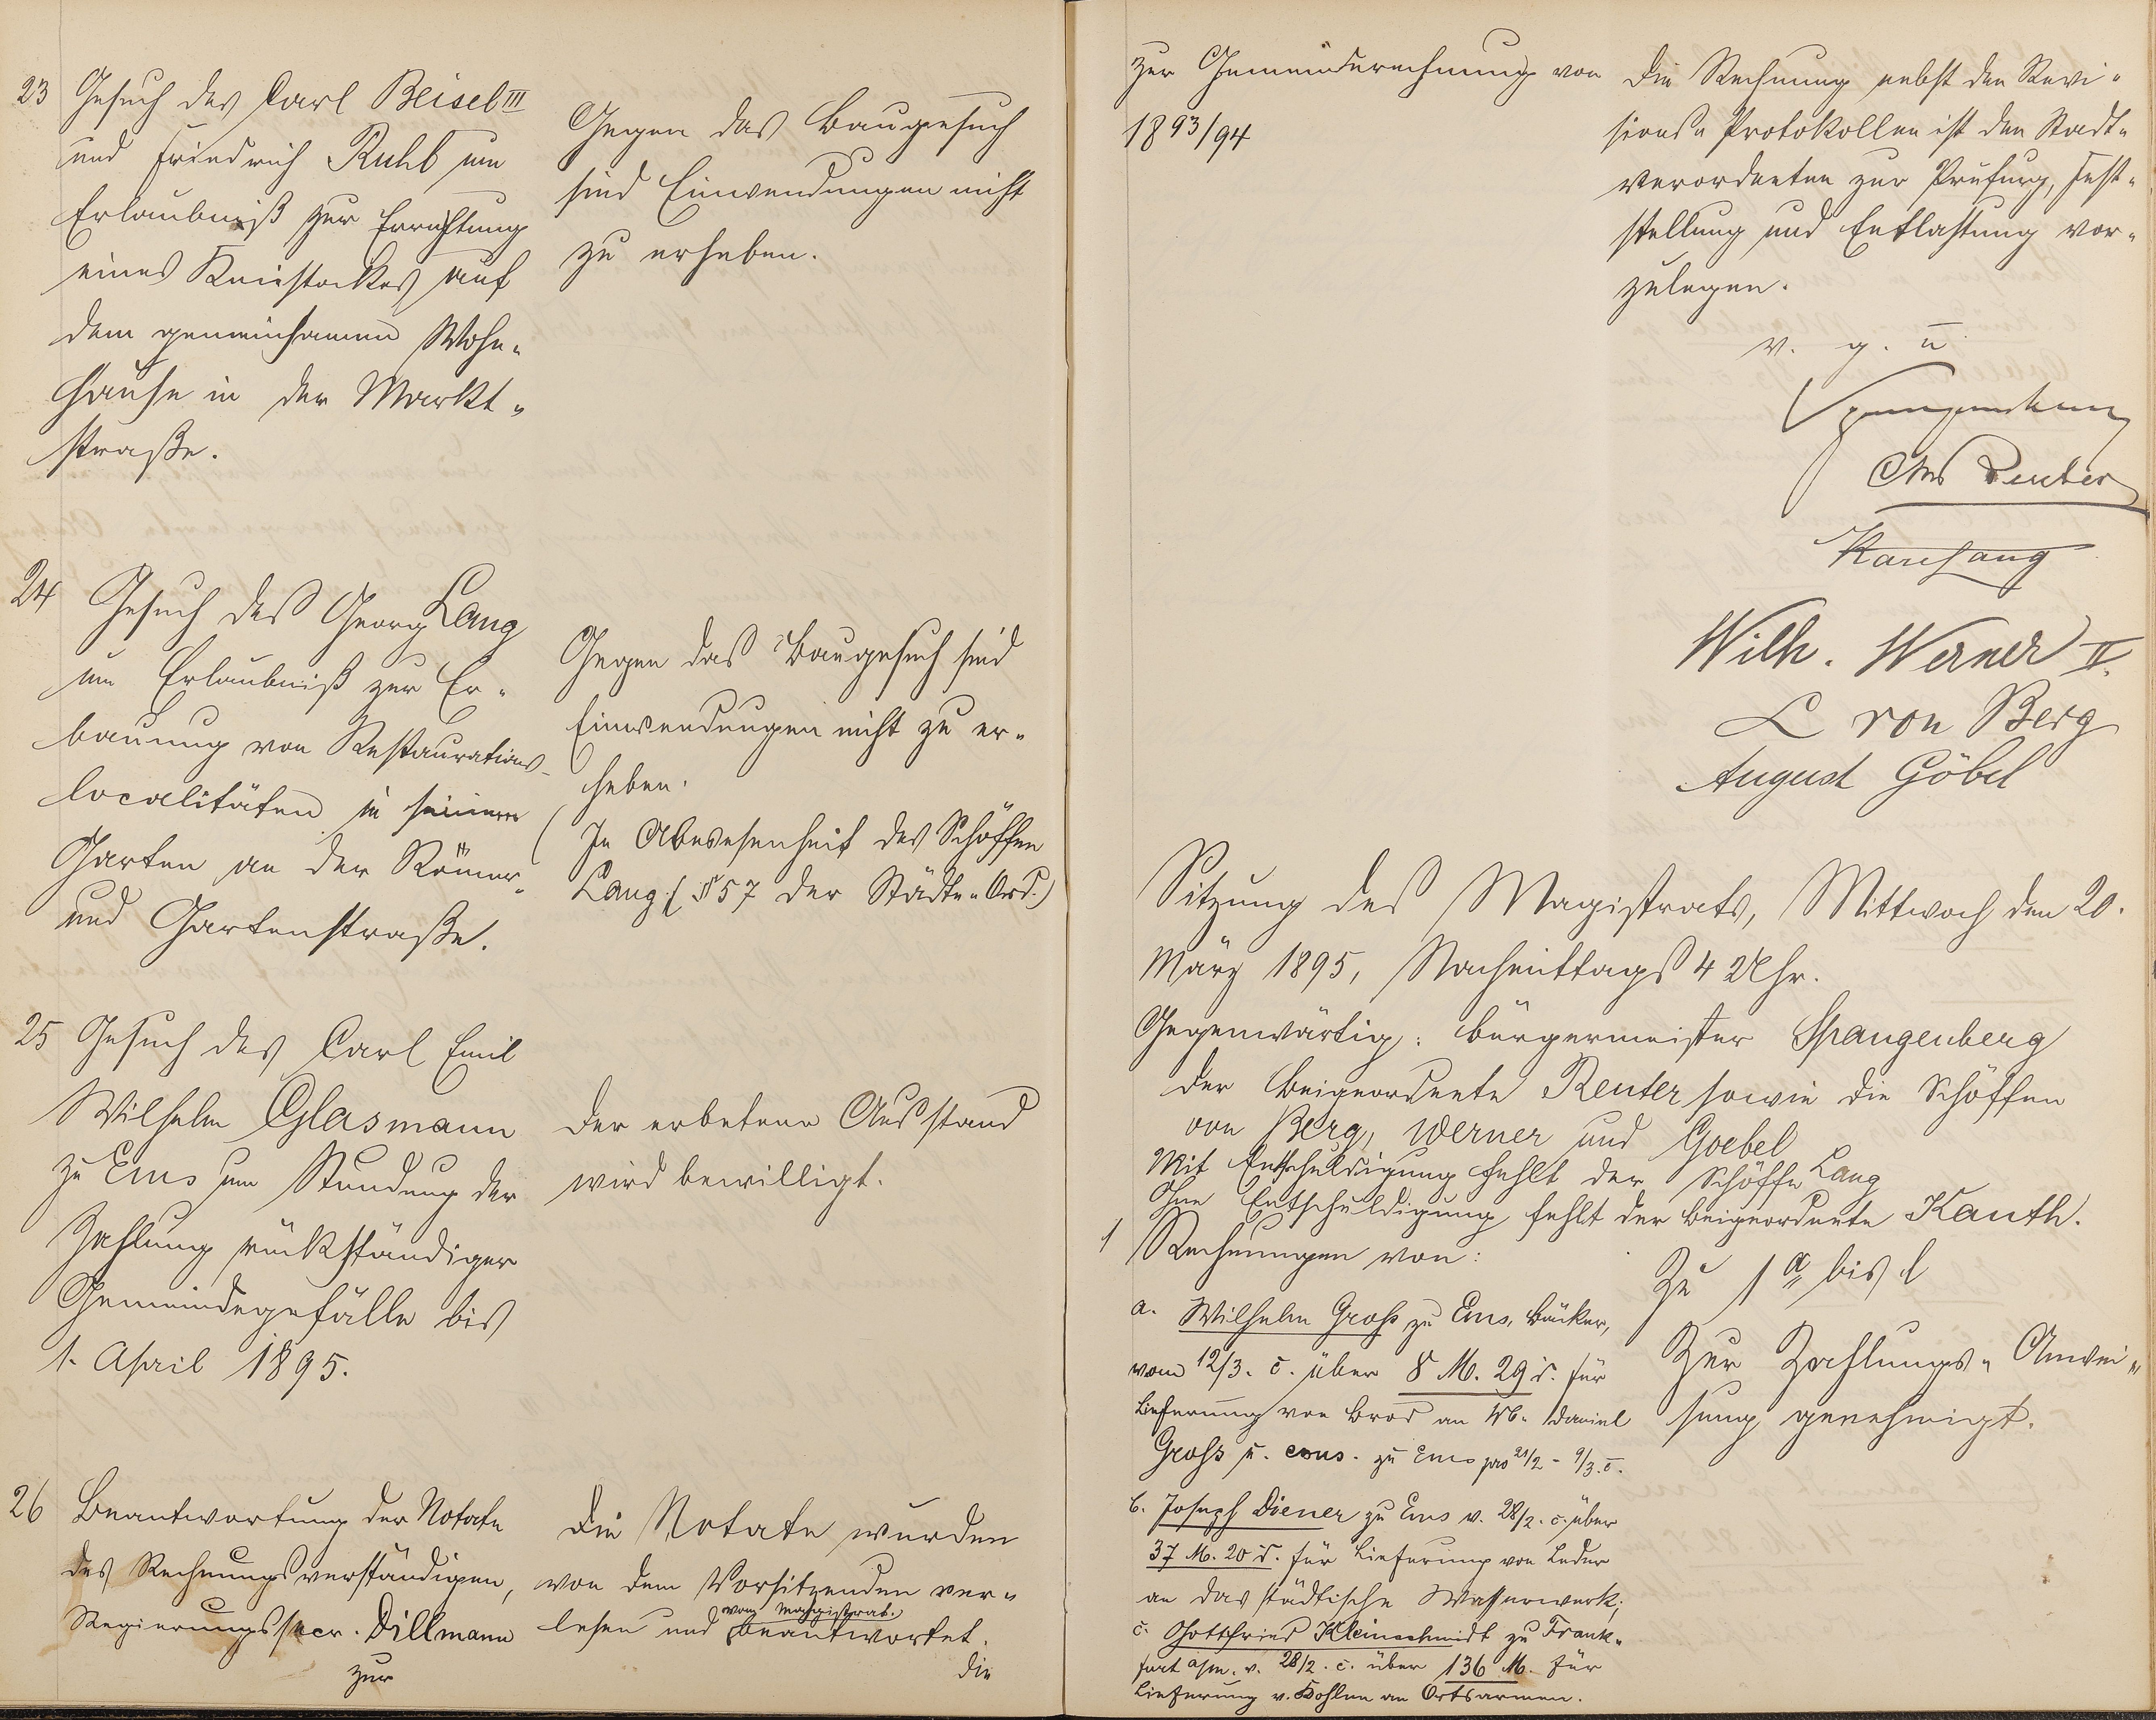 23 Gesuch des Carl Beisel III
und Friedrich Ruhl um
Erlaubniß zur Errichtung
eines Kniestockes auf
dem gemeinsamen Wohn-
hause in der Markt-
straße.
Gegen das Baugesuch
sind Einwendungen nicht
zu erheben.
24 Gesuch des Georg Lang
um Erlaubniß zur Er-
bauung von Restaurations-
localitäten in seinem
Garten an der Römer-
und Gartenstraße.
Gegen das Baugesuch sind
Einwendungen nicht zu er-
heben.
(In Abwesenheit des Schöffen
Lang. (§ 57 der Städte-Ord.)
25 Gesuch des Carl Emil
Wilhelm Glasmann
zu Ems um Stundung der
Zahlung rückständiger
Gemeindegefälle bis
1. April 1895.
Der erbetene Ausstand
wird bewilligt.
26 Beantwortung der Notate
des Rechnungsverständigen,
Regierungssecr. Dillmann
zur
Die Notate wurden
von dem Vorsitzenden ver-
lesen und vom Magistrat beantwortet.
die
zur Gemeinderechnung von
1893/94
Die Rechnung nebst den Revi-
sions-Protokollen ist den Stadt-
verordneten zur Prüfung, Fest-
stellung und Entlastung vor-
zulegen.
v. g. u
Spangenberg
Reuter
Karl Lang
Wilh. Werner II.
L von Berg
August Göbel
Sitzung des Magistrats, Mittwoch den 20.
März 1895, Nachmittags 4 Uhr.
Gegenwärtig: Bürgermeister Spangenberg
der Beigeordnete Reuter sowie die Schöffen
von Berg, Werner und Goebel
Mit Entschuldigung fehlt der Schöffe Lang
Ohne Entschuldigung fehlt der Beigeordnete Kauth.
1 Rechnungen von:
a. Wilhelm Groß zu Ems, Bäcker,
vom 12/3. c. über 8 M. 29 d. für
Lieferung von Brod an Wb. Daniel
Groß u. cons. zu Ems pro 21/2 - 9/3. c.
b. Joseph Diener zu Ems v. 28/2. c. über
37 M. 20 d. für Lieferung von Leder
an das städtische Wasserwerk;
c. Gottfried Kleinschmidt zu Frank-
furt a/m. v. 28/2. c. über 136 M. für
Lieferung v. Kohlen an Ortsarmen.
Zu 1 a bis l
Zur Zahlungs-Anwei-
sung genehmigt.